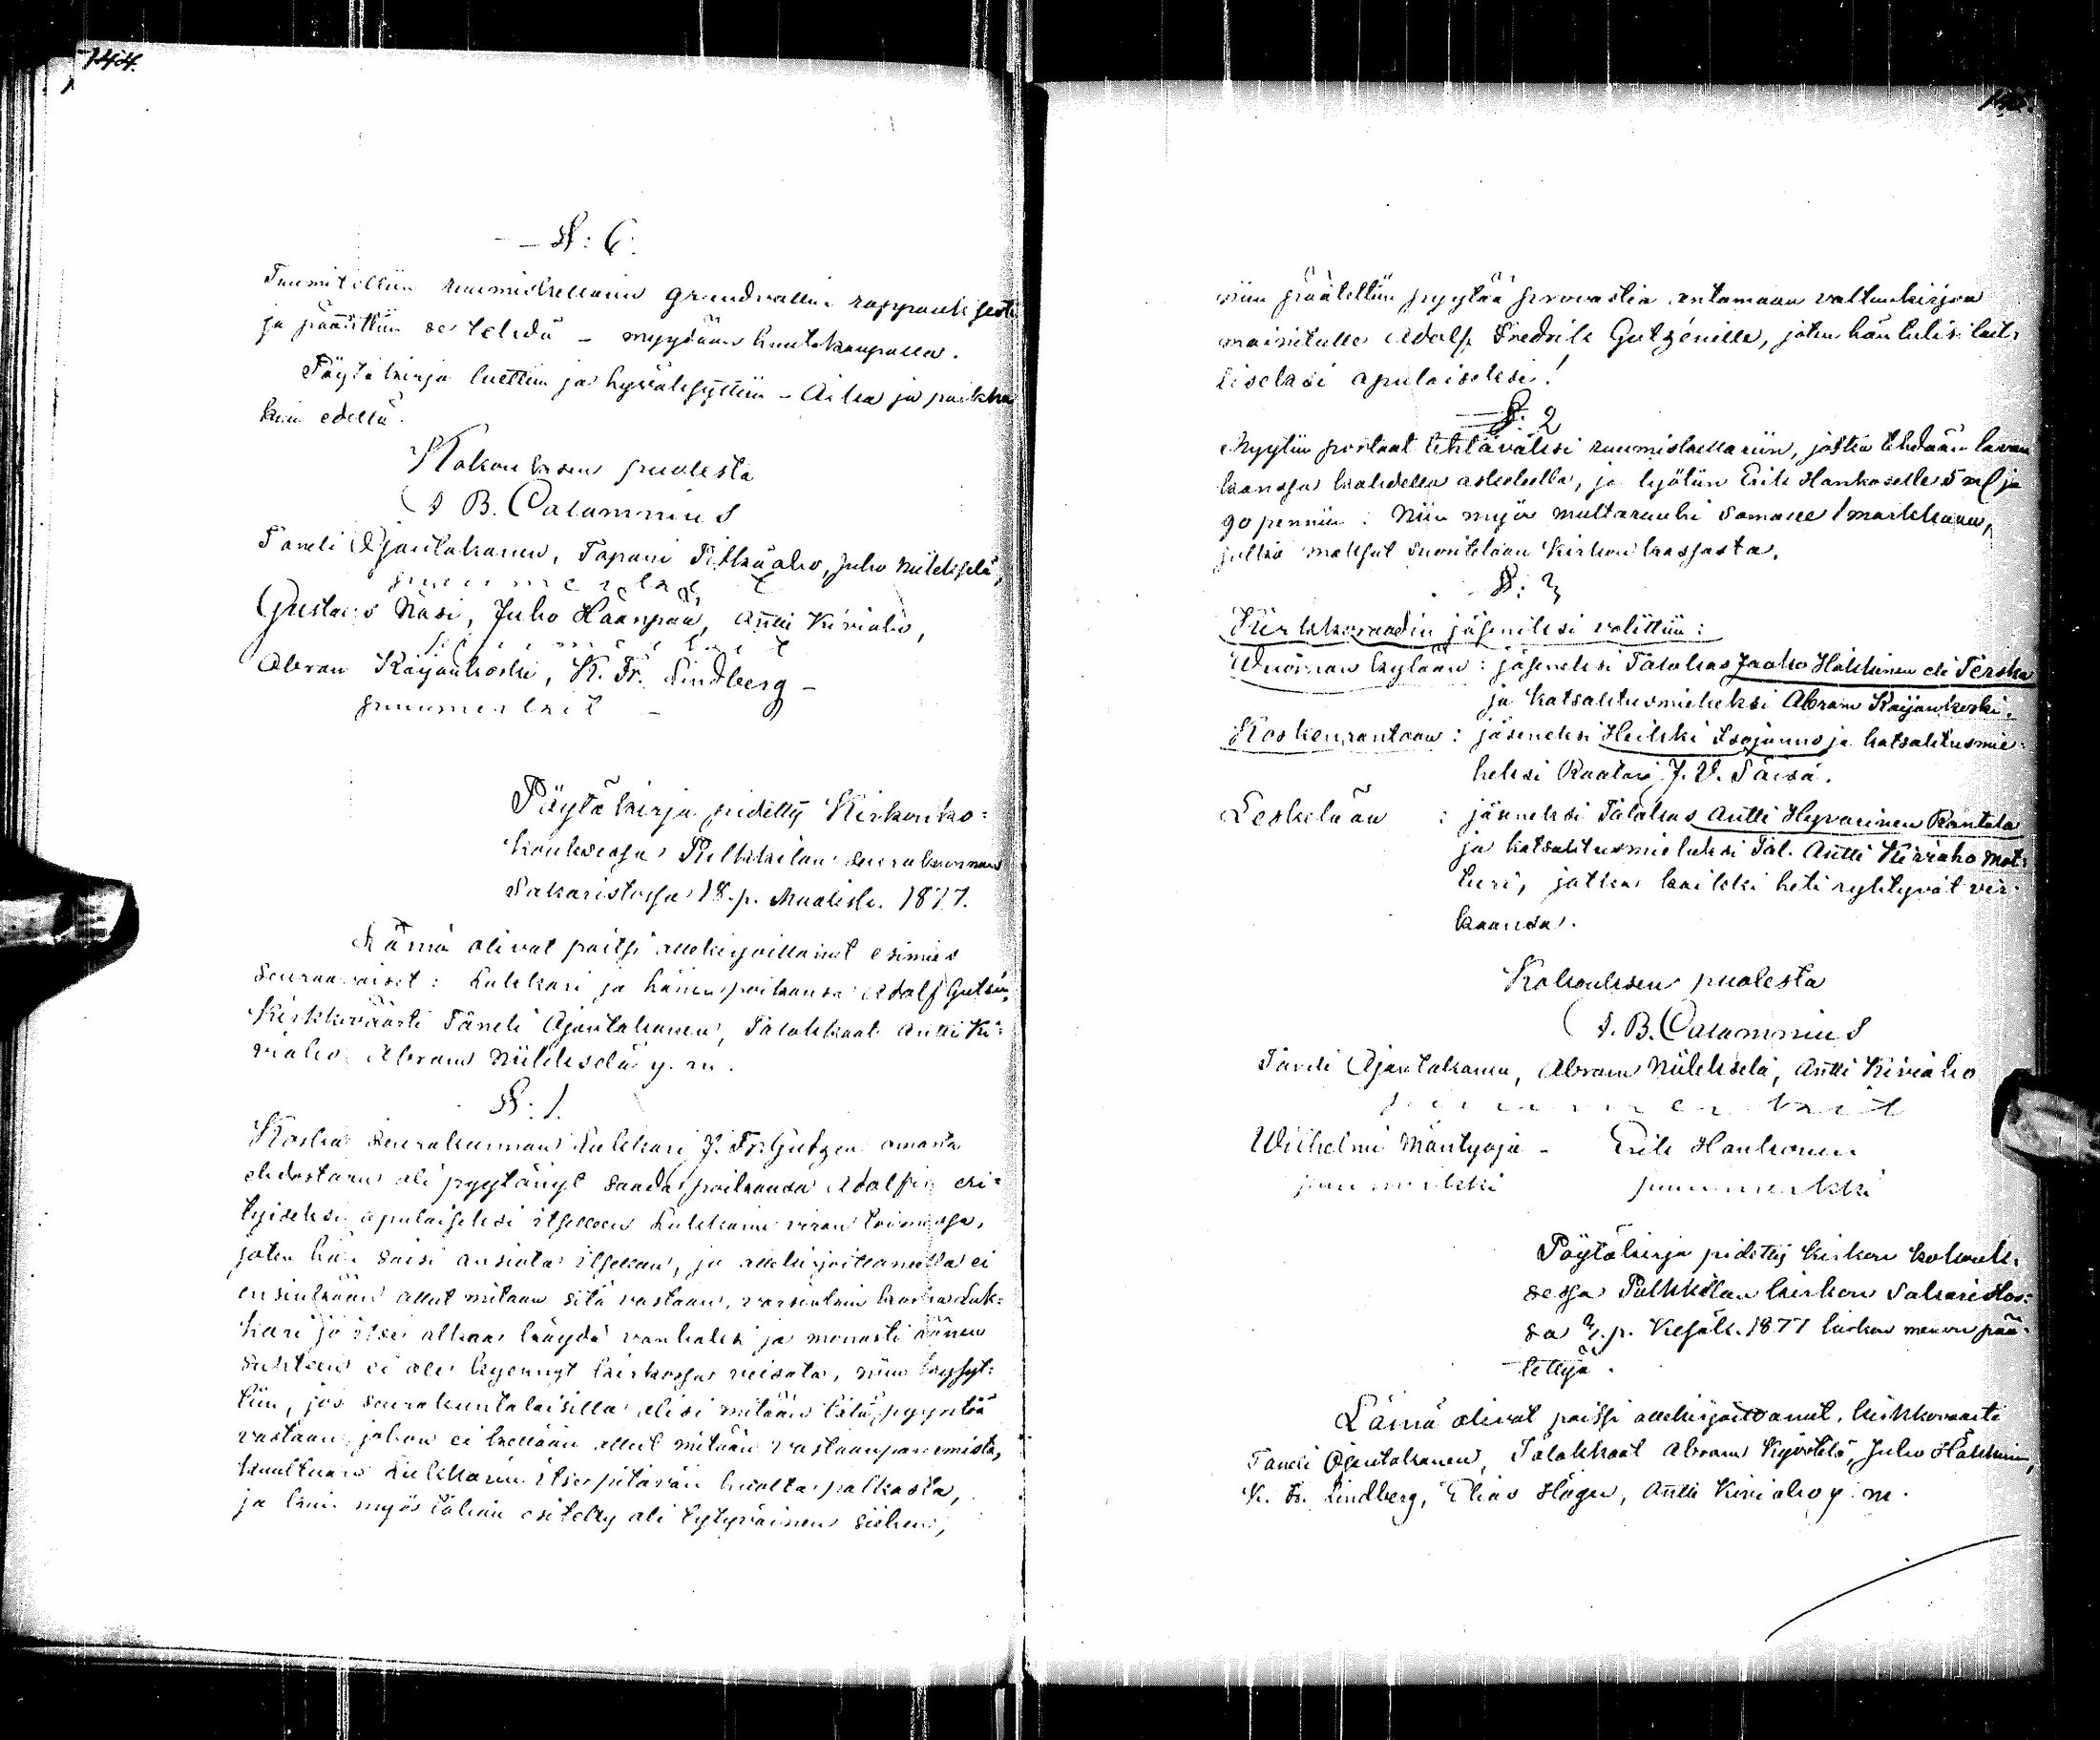 144.
§: 6.
Tuumiteltiin ruumiskellarin grundvallin rappauksesta
ja päätettiin se tehdä – myydään huutokaupalla.
Pöytäkirja luettiin ja hyväksyttiin – Aika ja paikka
kuin edellä.
Kokouksen puolesta
I. B. Calamnius
Taneli Ojantakanen, Tapani Pitkäaho, Juho Niilekselä,
puumerkit
Gustavs Näsi, Juho Haanpää, Antti Kiviaho,
puumerkit
Abram Käyänkoski, K. Fr. Lindberg –
puumerkit –
Pöytäkirja pidetty Kirkonko=
kouksessa Pulkkilan seurakunnan
Sakaristossa 18. p. Maalisk. 1877.
Läsnä olivat paitsi allekirjoittanut esimies
seuraavaiset: Lukkari ja hänen poikansa Adolf Gutzén,
Kirkkoväärti Taneli Ojantakanen, Talokkaat Antti Ki=
viaho Abram Niileksela y. m.
§: 1.
Koska seurakunnan Lukkari J. Fr. Gutzen omasta
ehdostans oli pyytänyt saada poikansa Adolfin eri=
tyiseksi apulaiseksi itselleen Lukkarin viran toimessa,
joten hän saisi ansiota itselleen, ja allekirjoittaneella ei
ensinkään ollut mitään sitä vastaan, varsinkin koska Luk=
kari jo itse alkaa käydä vanhaksi ja monasti äänen
suhteen ei ole kyennyt kirkossa veisata, niin kysyt=
tiin, jos seurakuntalaisilla olisi mitään tätä pyyntöä
vastaan johon ei kellään ollut mitään vastaanpanemista,
kuultuans Lukkarin itse pitävän huolta palkasta,
ja kuin myös tähän esitelty oli tytyväinen siihen,
niin päätettiin pyytää provastia antamaan valtuuskirjan
mainitulle Adolf Fredrik Gutzénille, joten hän tulisi lail=
liseksi apulaiseksi!
§. 2
Myytiin portaat tehtäväksi ruumiskellariin, jotka tehdään lavan
kanssa kahdella askeleella, ja lyötiin Erik Hankoselle 5 mk ja
90 penniin. Niin myös multaruuhi samalle 1 markkaan,
jotka maksut suoritetaan Kirkon kassasta.
§: 3
Kirkkoraadin jäseniksi valittiin:
Wuornan kylään: jäseneksi Talokas Jaako Häkkinen eli Terska
ja katsaktusmieheksi Abram Käyänkoski.
Koskenrantaan: jäseneksi Heikki Isojunno ja katsaktusmie=
heksi Raatari J. V. Säisä.
Leskelään: jäseneksi Talokas Antti Hyvarinen Rantala
ja katsaktusmieheksi Tal. Antti Kiviaho Mat=
turi, jotka kaikki heti ryhtyvät vir=
kaansa.
Kokouksen puolesta
I. B. Calamnius
Taneli Ojantakanen, Abram Niilekselä, Antti Kiviaho
puumerkit
Wilhelmi Mäntyoja – Erik Hankonen
puumerkki puumerkki
Pöytäkirja pidetty kirkon kokouk=
sessa Pulkkilan kirkon Sakaristos=
sa 3. p. Kesäk. 1877 kirkon menon pää=
tettyä.
Läsnä olivat paitsi allekirjoittanut, kirkkovaarti
Taneli Ojantakanen, Talokkaat Abram Kyöstilä, Juho Häkkinen,
K. Fr. Lindberg, Elias Högn, Antti Kiviaho y. m.